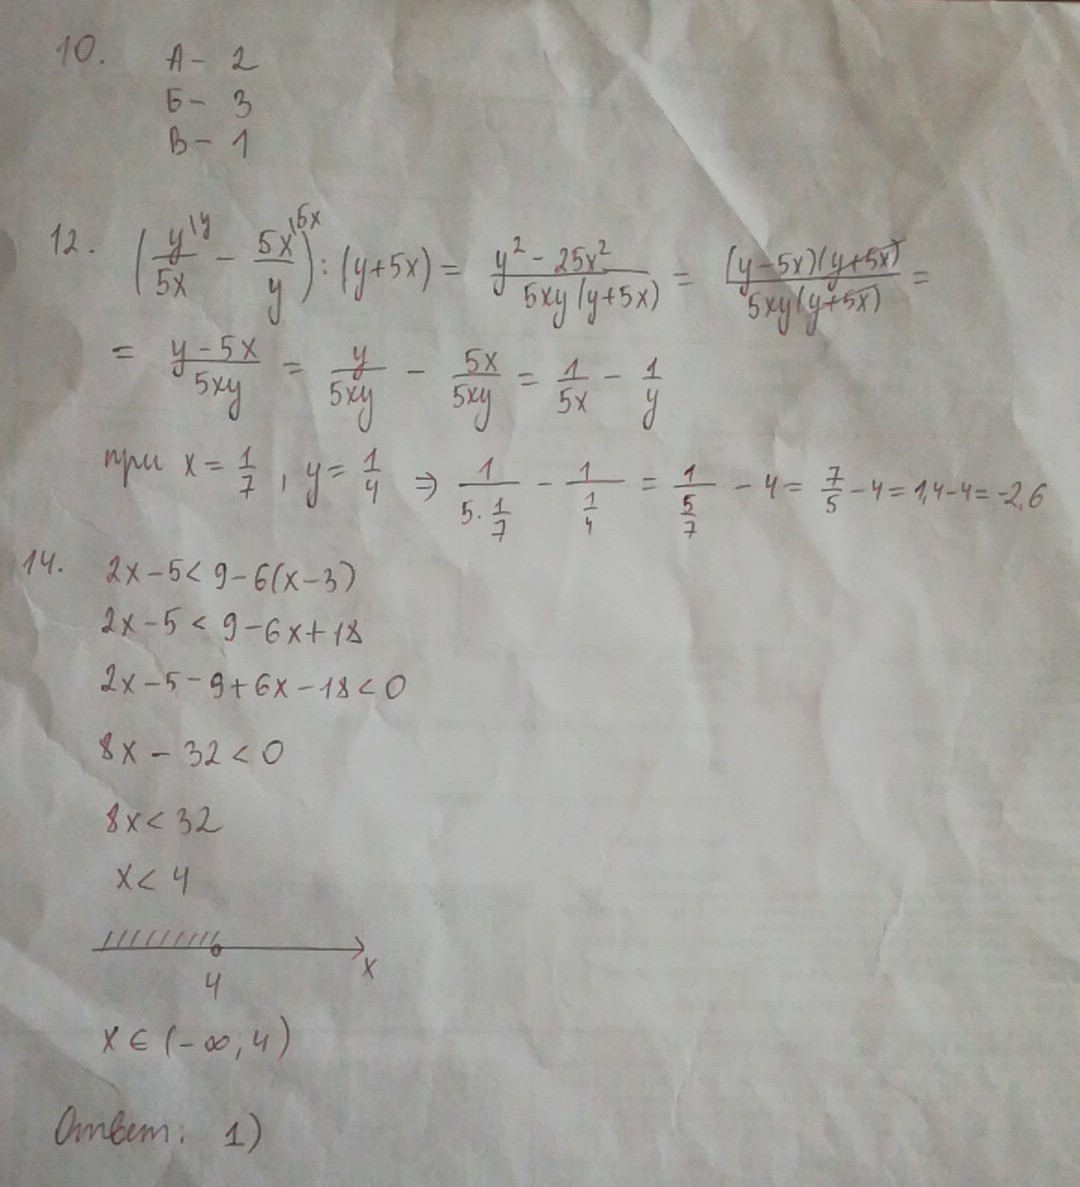 10. А- 2
Б- 3
В- 1
12. (y^{\y}/5x - 5x^{\5x}/y) : (y+5x) = (y² - 25x²)/(5xy(y+5x)) = ((y-5x)(y+5x))/(5xy(y+5x)) =
= (y-5x)/(5xy) = y/(5xy) - 5x/(5xy) = 1/(5x) - 1/y
при x = 1/7, y = 1/4 ⇒ 1/(5·1/7) - 1/(1/4) = 1/(5/7) - 4 = 7/5 - 4 = 1,4-4 = -2,6
14. 2x-5 < 9-6(x-3)
2x-5 < 9-6x+18
2x-5-9+6x-18<0
8x - 32 < 0
8x < 32
x < 4
4 x
x ∈ (-∞; 4)
Ответ: 1)